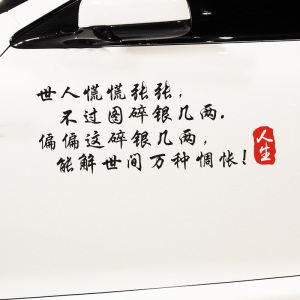 世人慌慌张张，
不过图碎银几两．
偏偏这碎银几两，
能解世间万种惆怅！
人生